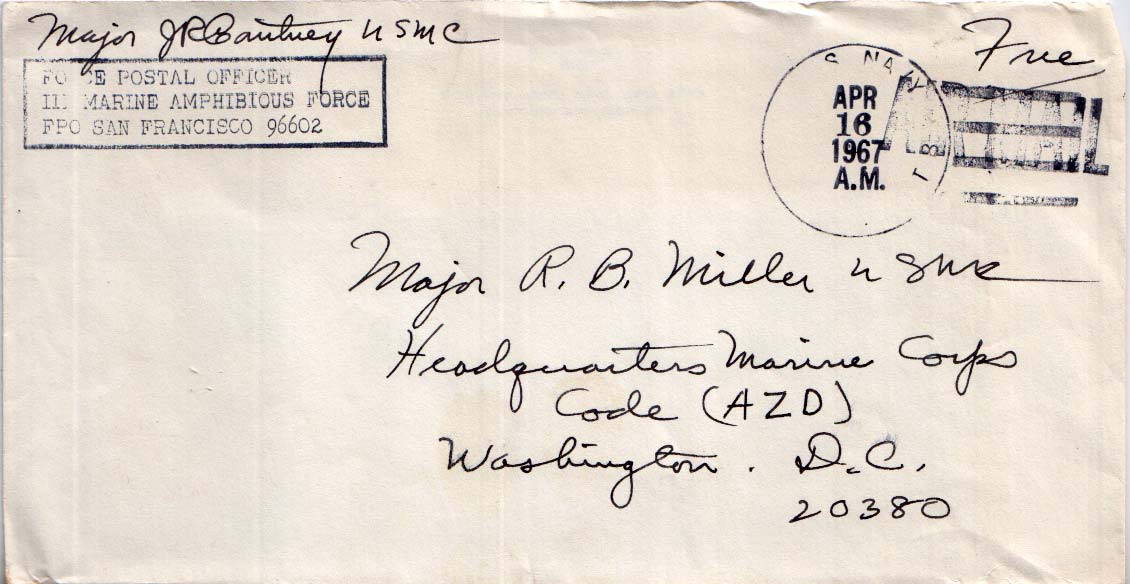 Major JR Gautney USMC
FORCE POSTAL OFFICER
III MARINE AMPHIBIOUS FORCE
FPO SAN FRANCISCO 96602
Free
S. NAVY
APR
16
1967
A.M.
AIR MAIL
Major R. B. Miller USMC
Headquarters Marine Corps
Code (AZD)
Washington. D.C.
20380